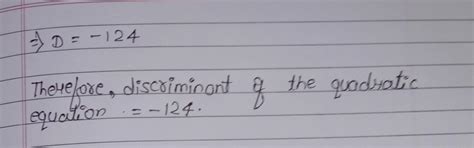 ⇒ D = -124
Therefore, discriminant of the quadratic
equation . = -124.